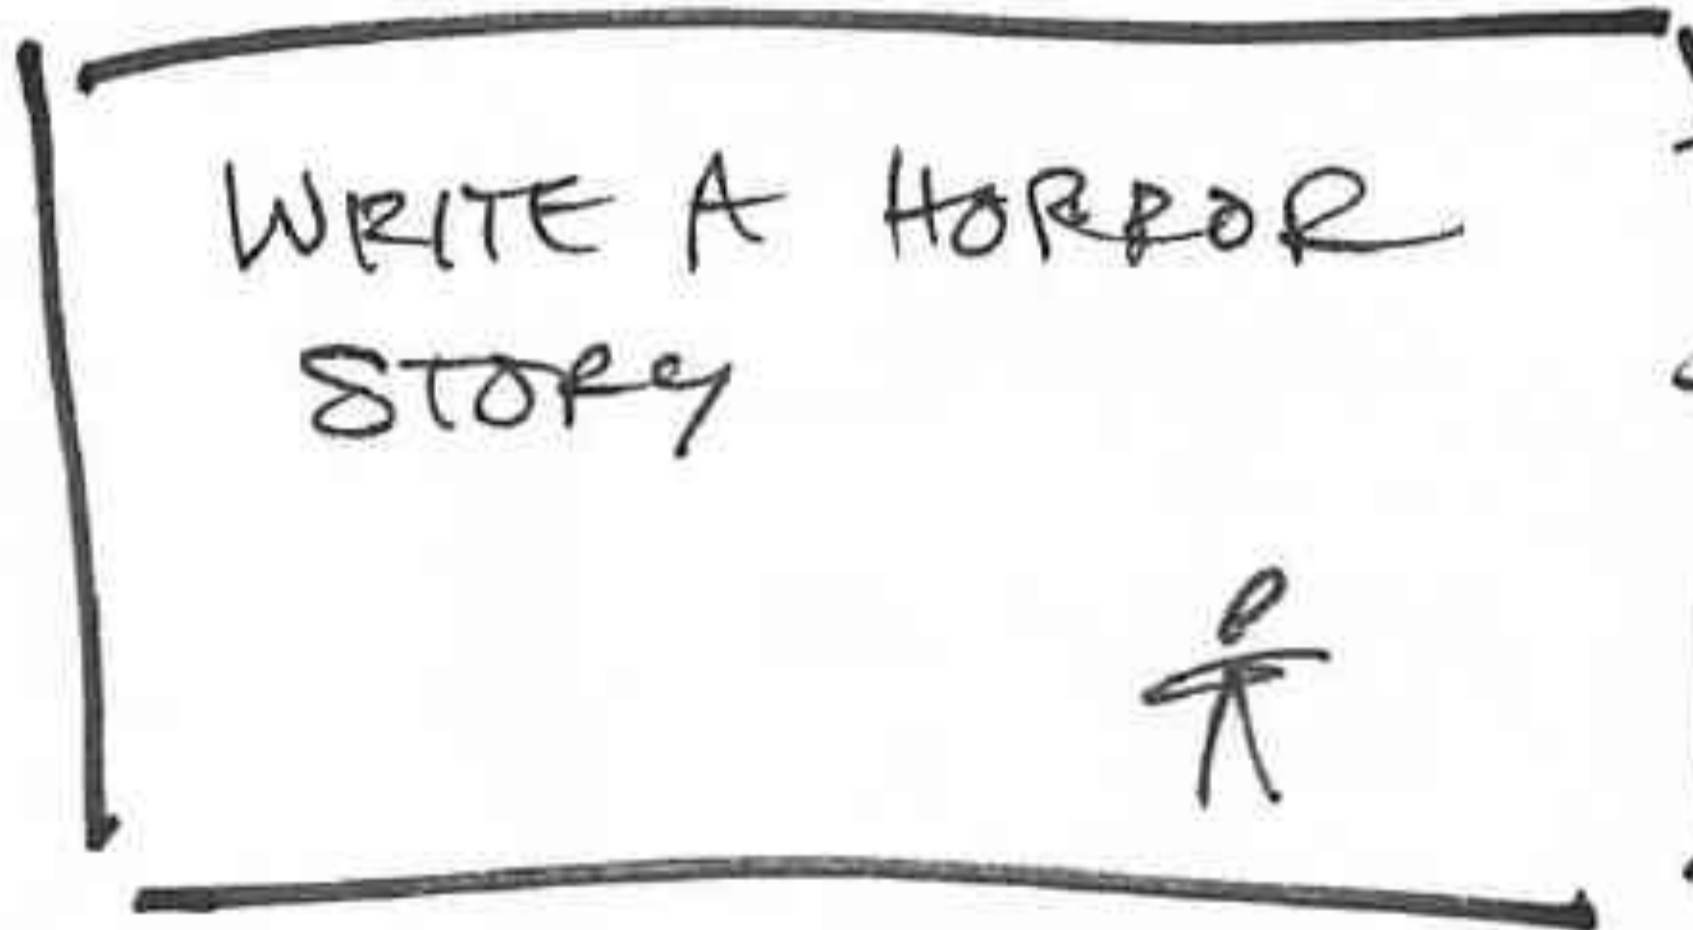 WRITE A HORROR
STORY